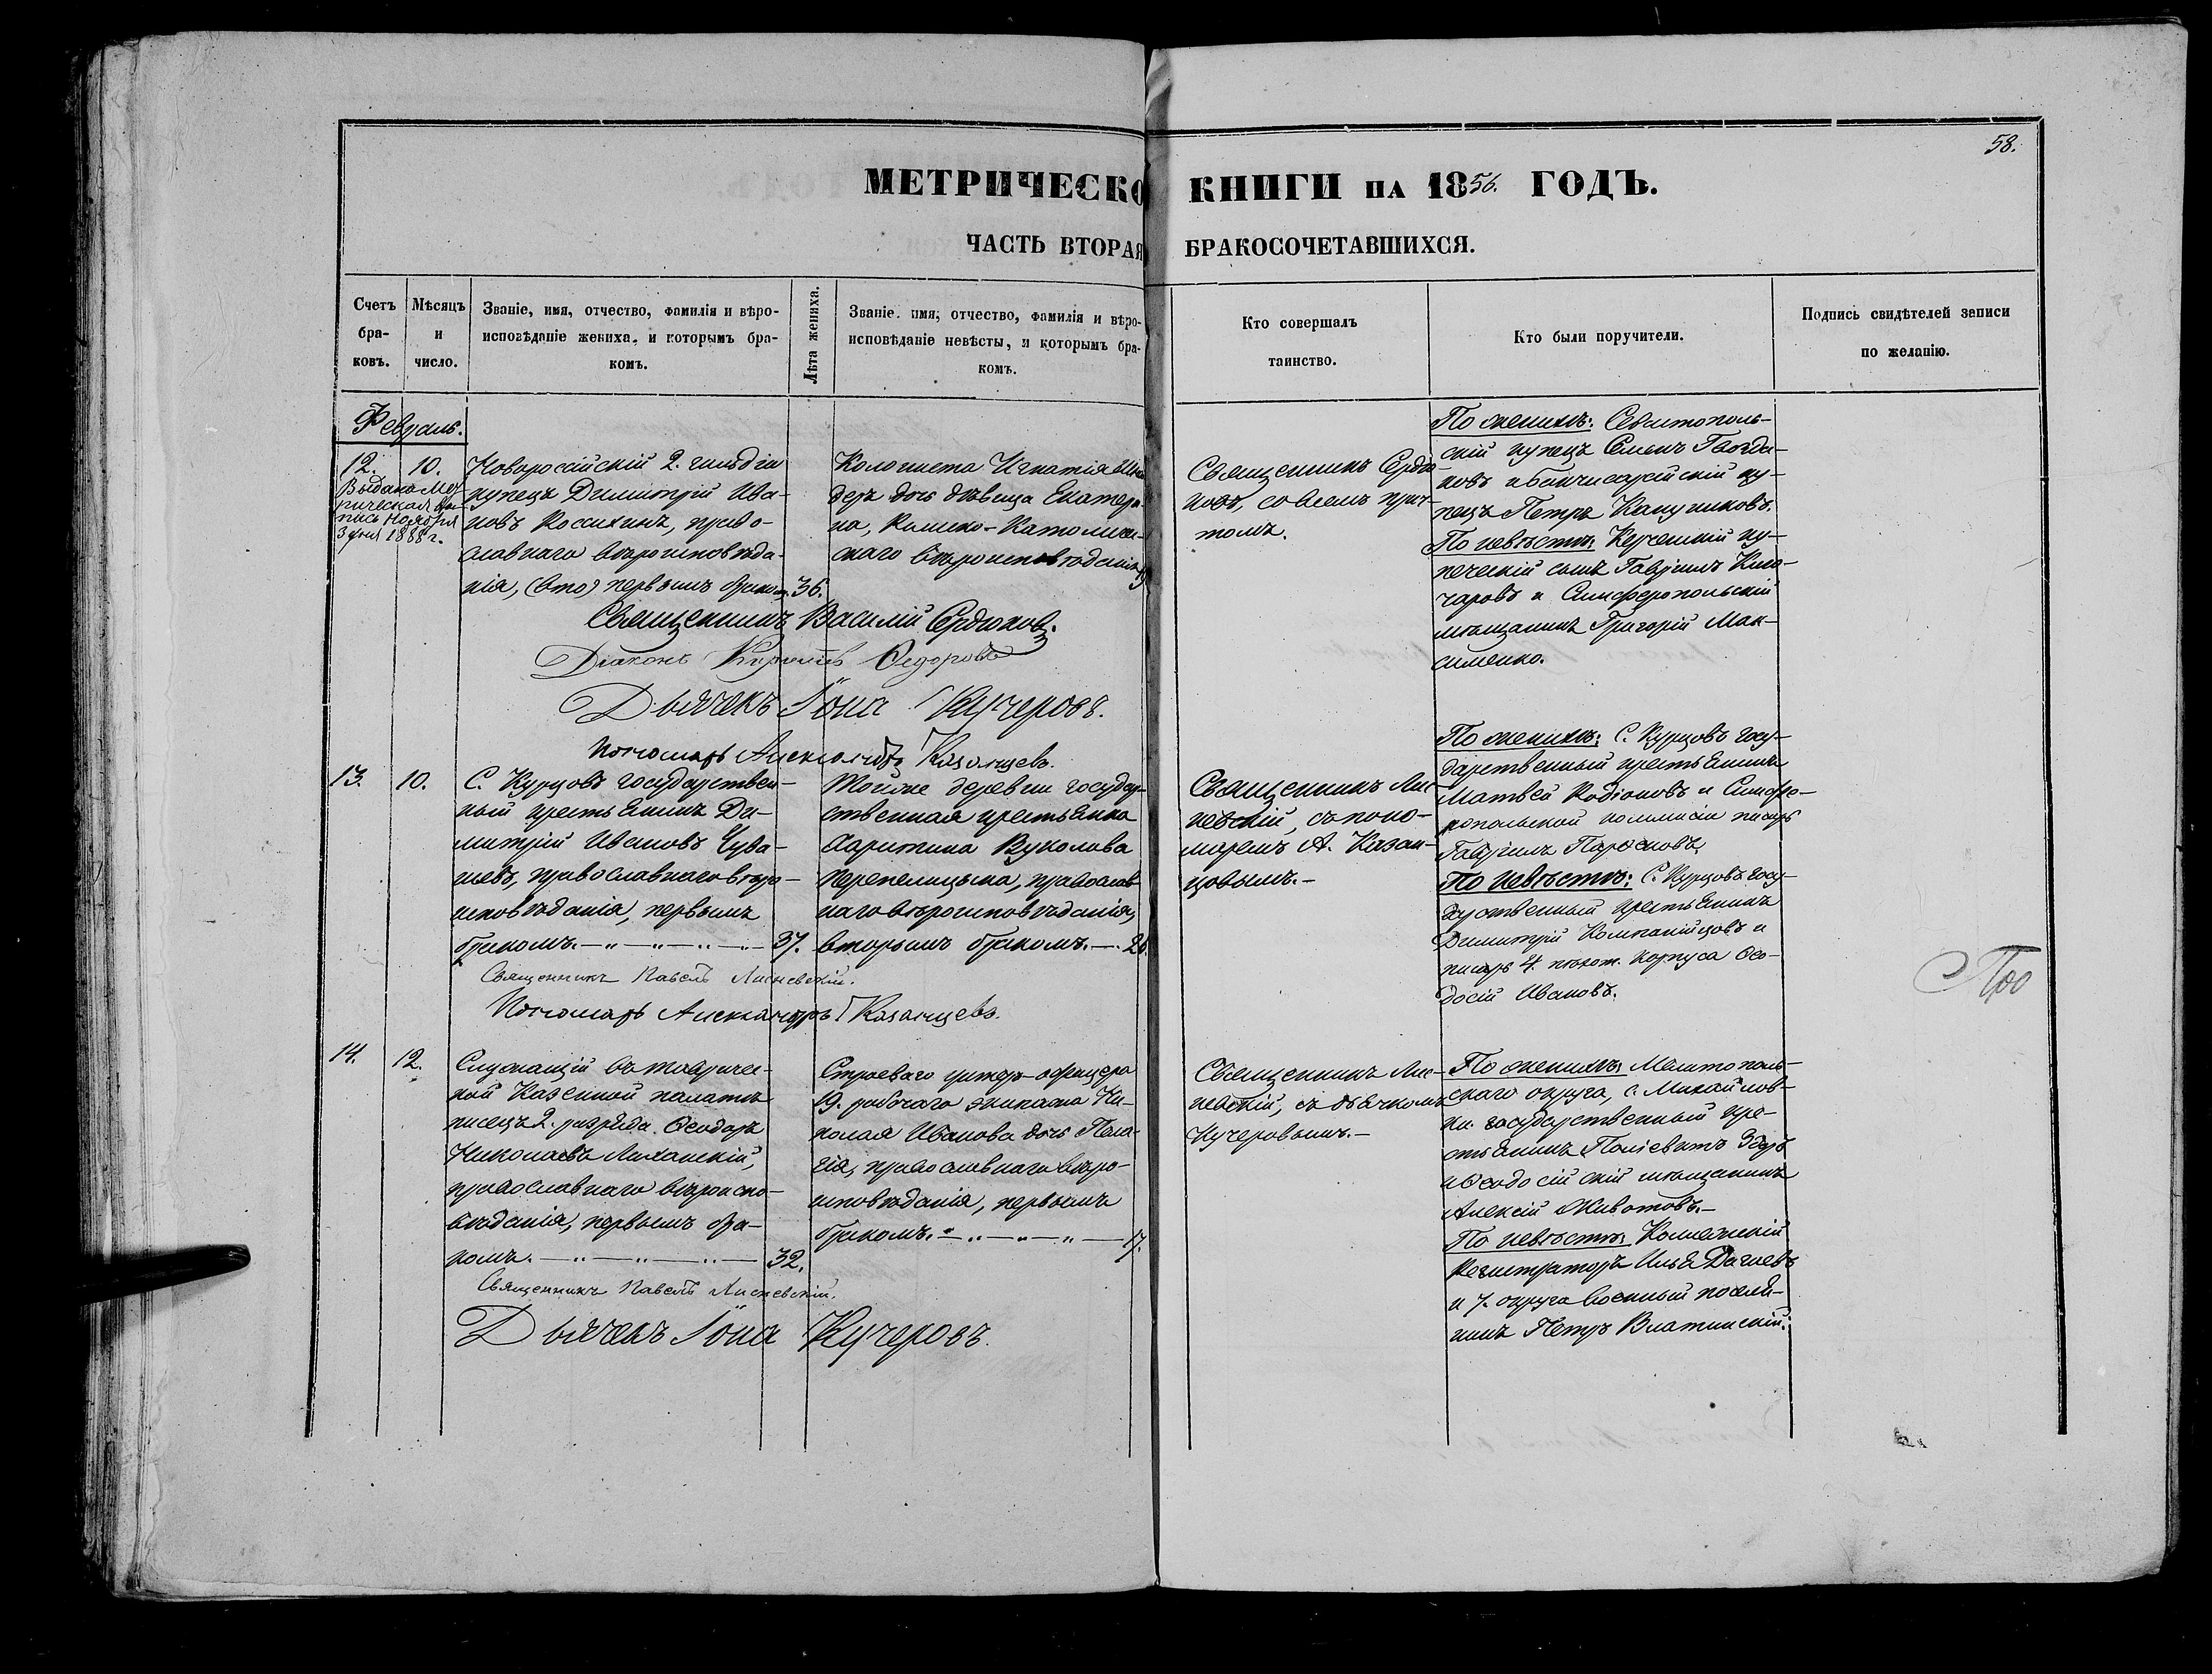 58.
МЕТРИЧЕСКО КНИГИ НА 1856. ГОДЪ.
ЧАСТЬ ВТОРАЯ БРАКОСОЧЕТАВШИХСЯ.
Счетъ бра-ковъ.
Мѣсяцъ и число.
Званіе, имя, отчество, фамилія и вѣро-
исповѣданіе жениха, и которымъ бра-
комъ.
Лѣта жениха.
Званіе, имя, отчество, фамилія и вѣро-
исповѣданіе невѣсты, и которымъ бра-
комъ.
Кто совершалъ
таинство.
Кто были поручители.
Подпись свидѣтелей записи
по желанію.
Февраль.
12.
10.
Выдана Мет-
рическая вы-
пись Ноября
3 дня 1888 г.
Новороссійскій 2. гильдіи
купецъ Димитрій Ива-
новъ Россихинъ, право-
славнаго вѣроисповѣда-
нія, (вто) первымъ бракомъ
36.
Колониста Игнатія
дочь дѣвица Екатери-
на, Римско-Католиче-
скаго вѣроисповѣданія
Священникъ Сердю-
ковъ, со всемъ прич-
томъ.
По женихѣ: Севастополь-
скій купецъ Семенъ Гвозди-
ковъ и Бахчисарайскій ку-
пецъ Петръ Калугиковъ.
По невѣстѣ: Керченскій ку-
печескій сынъ Гавріилъ
чаровъ и Симферопольскій
мѣщанинъ Григорій Мак-
сименко.
Священникъ Василій Сердюковъ.
Діаконъ Ѳедоровъ
Дьячекъ Іона Кучеровъ.
Пономарь Александръ Казанцевъ.
13.
10.
С. Курцовъ государствен-
ный крестьянинъ Ди-
митрій Ивановъ Чува-
шевъ, православнаго вѣро-
исповѣданія, первымъ
бракомъ.
37.
Мойке деревни государ-
ственная крестьянка
Харитина Вуколова
Перепелицына, православ-
наго вѣроисповѣданія,
вторымъ бракомъ.
26.
Священникъ Лис-
невскій, съ поно-
маремъ А. Казан-
цовымъ.
По женихѣ: С. Курцовъ госу-
дарственный крестьянинъ
Матвей Родіоновъ и Симфе-
ропольской коммисіи писарь
Гавріилъ
По невѣстѣ: С. Курцовъ госу-
дарственный крестьянинъ
Димитрій Компанійцовъ и
писарь 4. пѣхот. Корпуса Ѳео-
досій Ивановъ.
Священникъ Павелъ Лисневскій.
Пономарь Александръ Казанцевъ.
Про
14.
12.
Служащій въ Тавричес-
кой Казенной палатѣ
писецъ 2. разряда Ѳеодоръ
Николаевъ Лиханскій,
православнаго вѣроиспо-
вѣданія, первымъ бра-
комъ.
32.
Строеваго унтеръ-офицера
19. рабочаго экипажа Ни-
колая Иванова дочь Пела-
гія, православнаго вѣро-
исповѣданія, первымъ
бракомъ.
17.
Священникъ Лис-
невскій, съ дьячкомъ
Кучеровымъ.
По женихѣ: Мелитополь-
скаго округа, с. Михайлов-
ки государственный кре-
стьянинъ Поліевктъ
и Ѳеодосійскій мѣщанинъ
Алексій Животовъ.
По невѣстѣ: Коллежскій
Регистраторъ Илья Дагаевъ
и 7. округа военный поселя-
нинъ Петръ Влатинскій.
Священникъ Павелъ Лисневскій.
Дьячекъ Іона Кучеровъ.